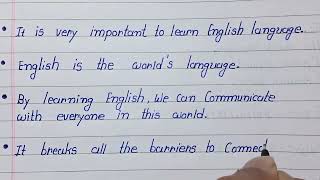 • It is very important to learn English language.
• English is the world's language.
• By learning English, We can Communicate
with everyone in this world.
• It breaks all the barriers to Connect